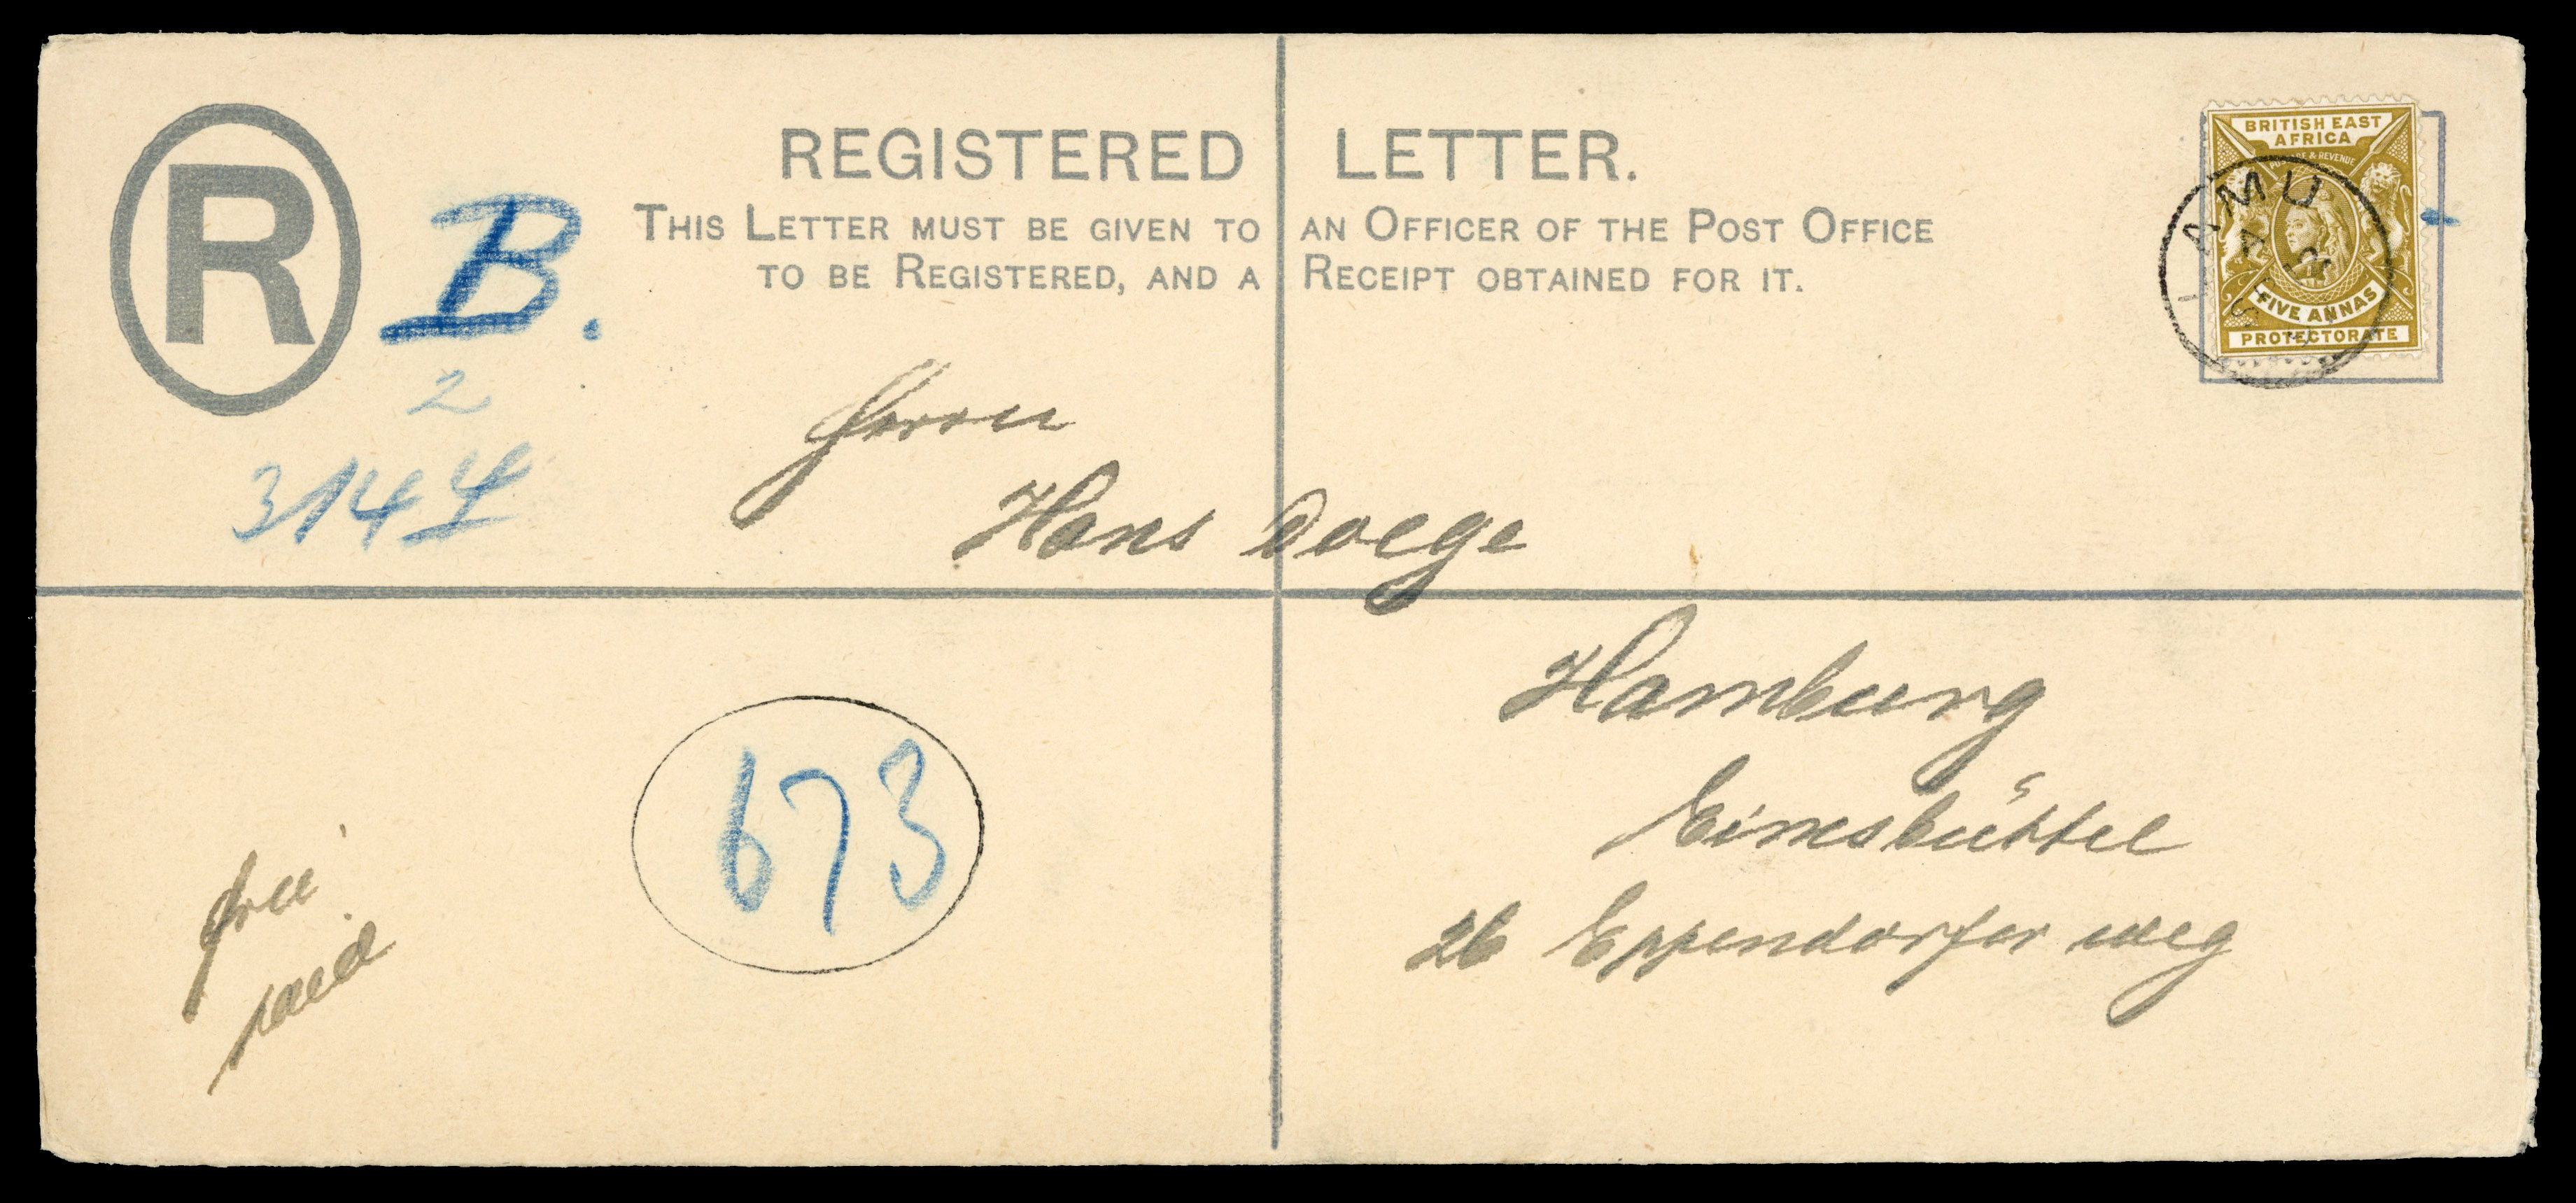 R
REGISTERED LETTER.
THIS LETTER MUST BE GIVEN TO AN OFFICER OF THE POST OFFICE
TO BE REGISTERED, AND A RECEIPT OBTAINED FOR IT.
BRITISH EAST
AFRICA
POSTAGE & REVENUE
FIVE ANNAS
PROTECTORATE
LAMU
B.
2
3144
Herrn
Hans Doege
Hamburg
Eimsbüttel
26 Eppendorfer weg
673
frei
paid